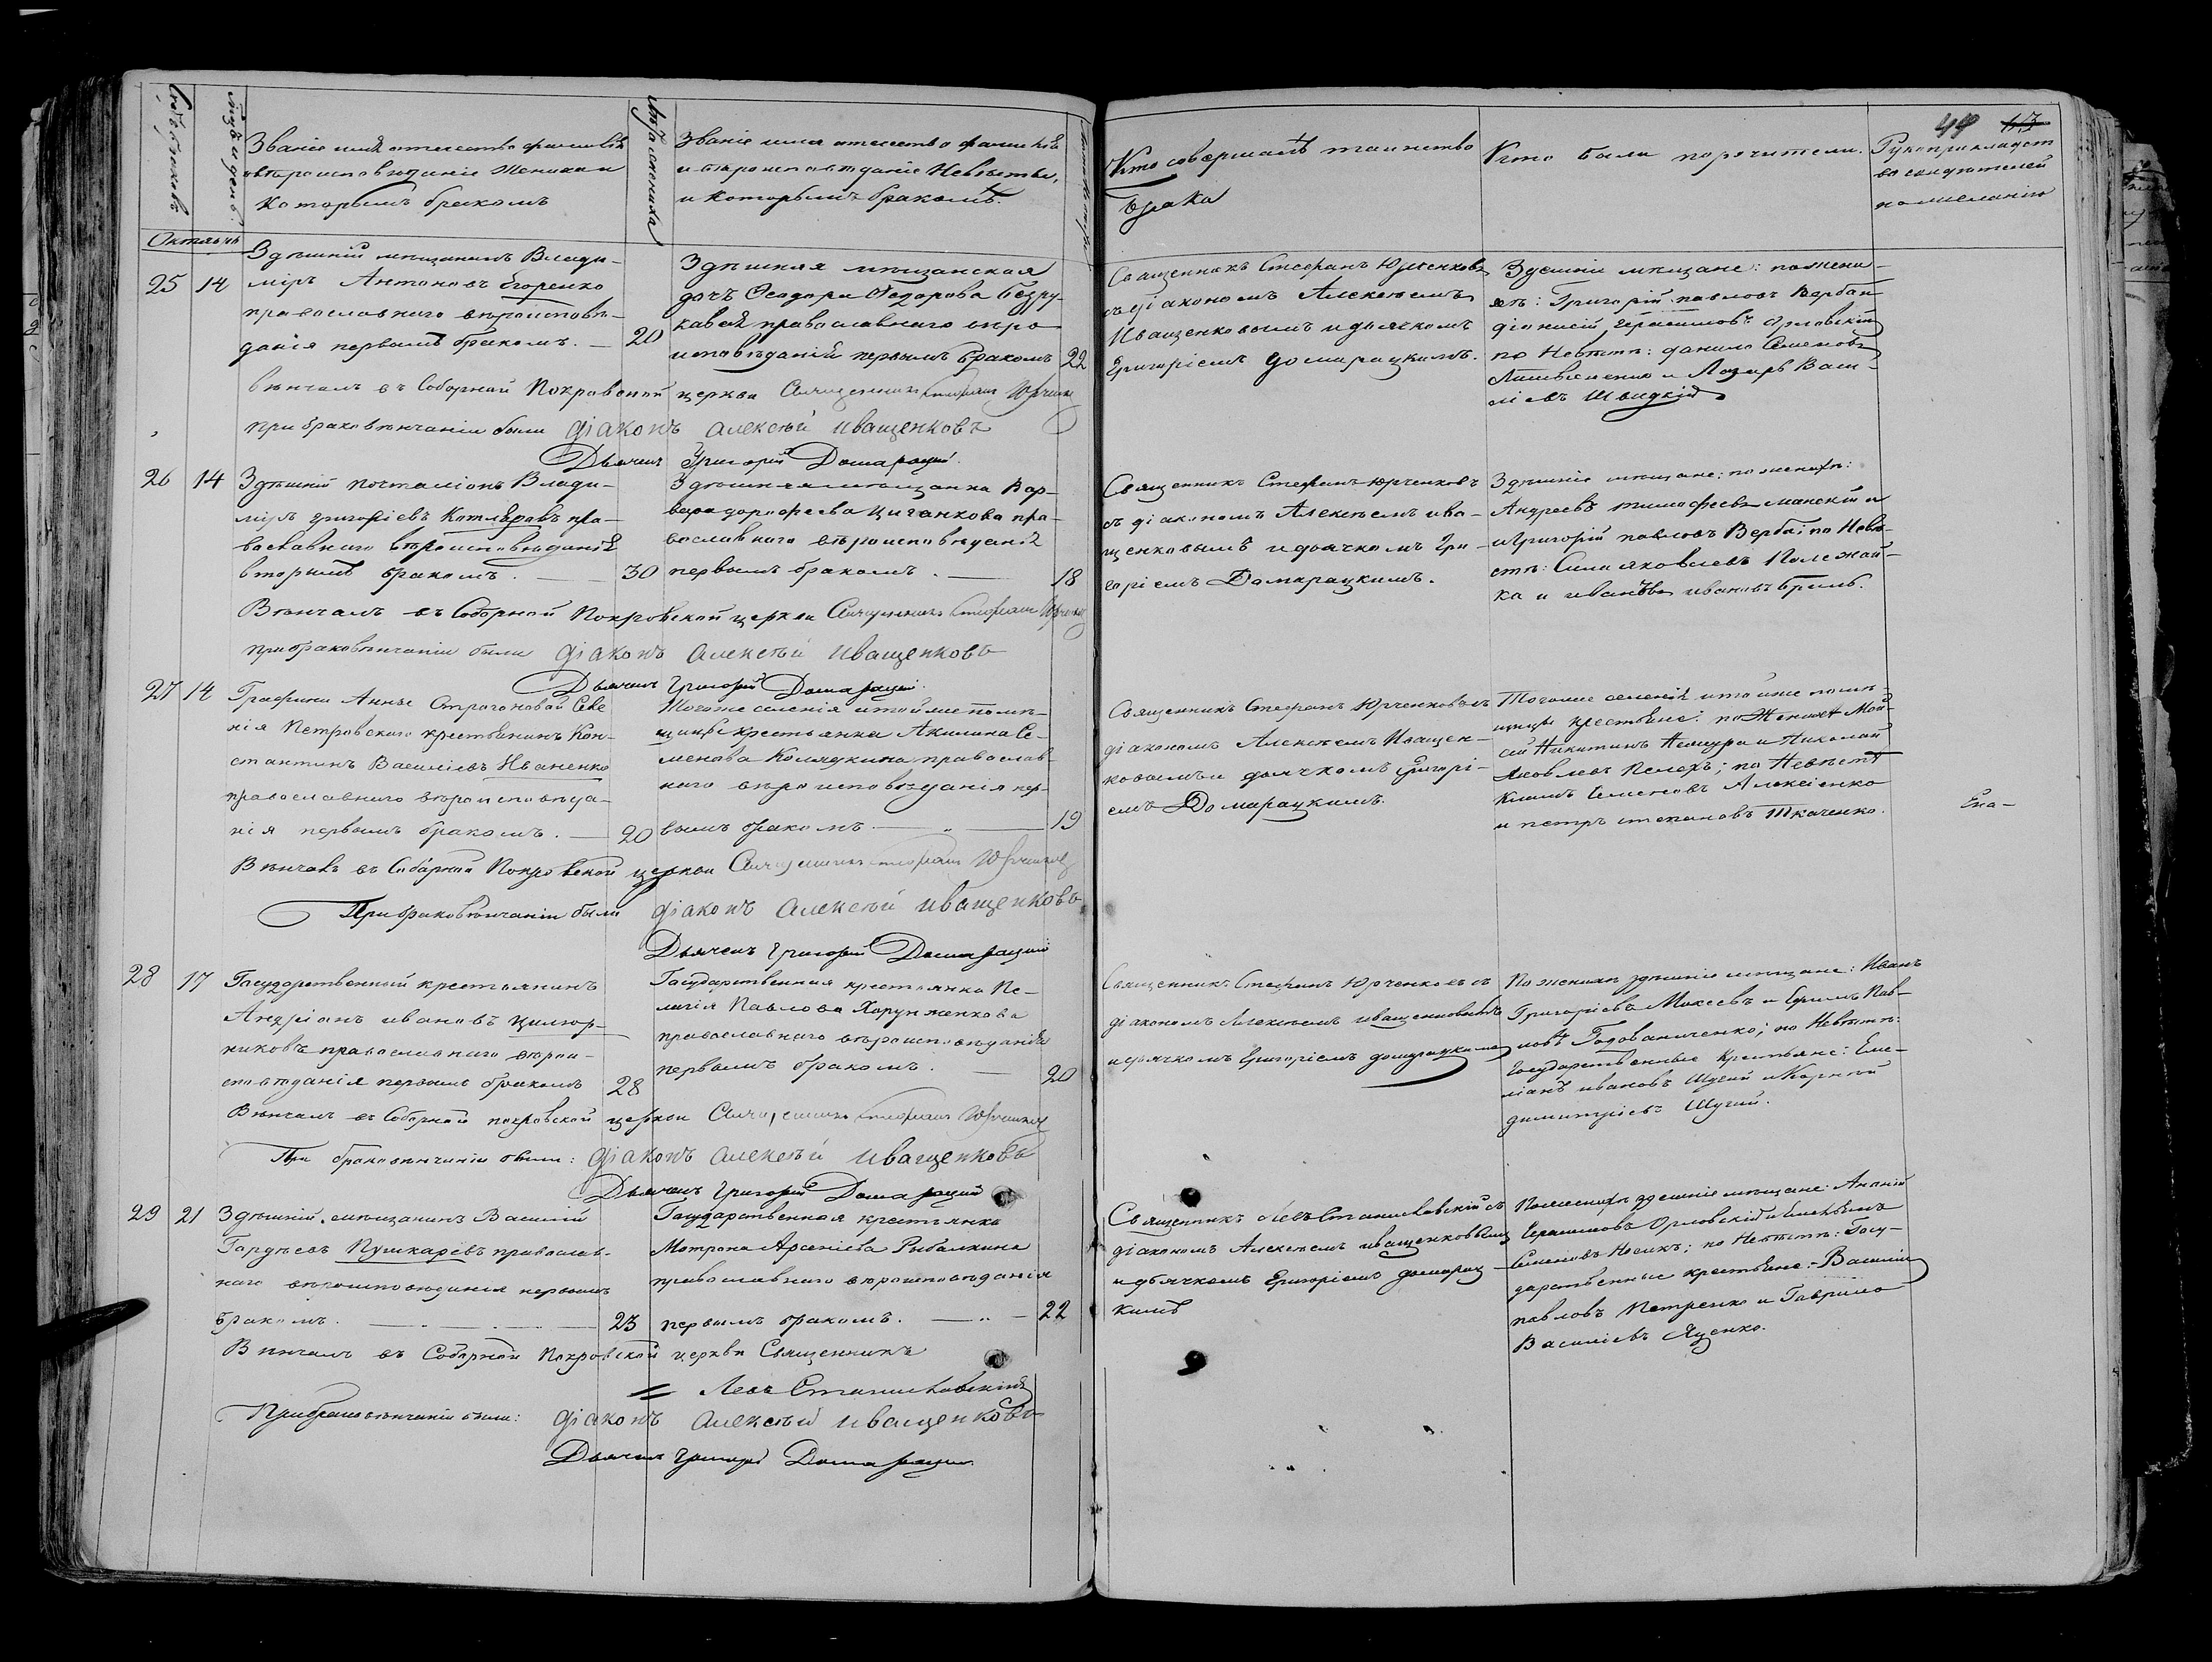 44 63
Счетъ браковъ
Мцъ и день
Званіе имя отечество фамилія
и вѣроисповѣданіе Жениха и
которымъ бракомъ
Лѣта жениха
Званіе имя отечество фамилія
и вѣроисповѣданіе Невѣсты,
и которымъ бракомъ.
Кто совершалъ таинство
брака
Кто были поручители.
Рукоприкладст
во свидѣтелей
по желанію
Октябрь
25 14
Здѣшній мѣщанинъ Влади-
міръ Антоновъ Егоренко
православнаго вѣроисповѣ-
данія первымъ бракомъ. — 20
Здѣшняя мѣщанская
дочь Ѳеодора Ѳедорова Безру-
кавая православнаго вѣро
исповѣданія первымъ бракомъ 22
Священникъ Стефанъ Юрченковъ
съ діакономъ Алексѣемъ
Иващенковымъ и дьячкомъ
Григоріемъ Домарацкимъ.
Здѣшніе мѣщане: по жени-
хѣ: Григорій Павловъ Вербай
Діонисій Герасимовъ Орловскій
по Невѣстѣ: Данило Семеновъ
Литвиненко и Лазарь Васи-
ліевъ Швидкій
вѣнчалъ въ Соборной Покровской церкви Священникъ Стефанъ Юрченко
при браковѣнчаніи были діаконъ Алексѣй Иващенковъ
Дьячекъ Григорій Домарацкій.
26 14
Здѣшній почталіонъ Влади-
міръ Григоріевъ Котляровъ пра-
вославнаго вѣроисповѣданія
вторымъ бракомъ. — 30
Здѣшняя мѣщанка Вар-
вара Дорофеева Циганкова пра-
вославнаго вѣроисповѣданія
первымъ бракомъ. — 18
Священникъ Стефанъ Юрченковъ
съ діакономъ Алексѣемъ Ива-
щенковымъ и дьячкомъ Гри-
горіемъ Домарацкимъ.
Здѣшніе мѣщане: по женихѣ:
Андреевъ Тимофеевъ Манскій и
Григорій Павловъ Вербай; по Невѣ-
стѣ: Сила Яковлевъ Полежай-
ка и Иванъ Ивановъ Бриль.
Вѣнчалъ въ Соборной Покровской церкви Священникъ Стефанъ Юрченко
при браковѣнчаніи были діаконъ Алексѣй Иващенковъ
Дьячекъ Григорій Домарацкій.
27 14
Графини Анны Строгоновой Селе
нія Петровскаго крестьянинъ Кон-
стантинъ Василіевъ Иваненко
православнаго вѣроисповѣда-
нія первымъ бракомъ. — 20
Тогоже селенія и тойже помѣ-
щицы крестьянка Акилина Се-
менова Колядкина православ-
наго вѣроисповѣданія пер-
вымъ бракомъ. — 19
Священникъ Стефанъ Юрченковъ съ
діакономъ Алексѣемъ Иващен-
ковымъ и дьячкомъ Григорі-
емъ Домарацкимъ.
Тогоже селенія и тойже помѣ-
щицы крестьяне: по Женихѣ Мой-
сей Никитинъ и Николай
Яковлевъ Пелехъ; по Невѣстѣ
Климъ Семеновъ Алексіенко
и Петръ Степановъ Ткаченко.
Вѣнчалъ въ Соборной Покровской церкви Священникъ Стефанъ Юрченковъ
При браковѣнчаніи были діаконъ Алексѣй Иващенковъ
Дьячекъ Григорій Домарацкій
28 17
Государственный крестьянинъ
Андріанъ Ивановъ Цилюр-
никовъ православнаго вѣрои-
сповѣданія первымъ бракомъ 28
Государственная крестьянка Пе-
лагія Павлова Харунженкова
православнаго вѣроисповѣданія
первымъ бракомъ. — 20
Священникъ Стефанъ Юрченковъ съ
діакономъ Алексѣемъ Иващенковымъ
и дьячкомъ Григоріемъ Домарацкимъ
По женихѣ здѣшніе мѣщане: Иванъ
Григоріевъ Мокеевъ и Ефимъ Пав-
ловъ Годованиченко; по Невѣстѣ:
Государственные Крестьяне: Еме-
ліанъ Ивановъ Шугий и Корнѣй
Димитріевъ Шугий.
Вѣнчалъ въ Соборной Покровской церкви Священникъ Стефанъ Юрченко
При браковѣнчаніи были: діаконъ Алексѣй Иващенковъ
Дьячекъ Григорій Домарацкій
29 21
Здѣшній мѣщанинъ Василій
Гордѣевъ Пушкаревъ православ-
наго вѣроисповѣданія первымъ
бракомъ. — 23
Государственная крестьянка
Матрона Арсеніева Рыбалкина
православнаго вѣроисповѣданія
первымъ бракомъ. — 22
Священникъ Левъ Станиславскій съ
діакономъ Алексѣемъ Иващенковымъ
и дьячкомъ Григоріемъ Домарац-
кимъ
По женихѣ здѣшніе мѣщане: Ананій
Герасимовъ Орловскій и
Семеновъ Носикъ; по Невѣстѣ: Госу-
дарственные крестьяне: Василій
Павловъ Петренко и Гаврило
Василіевъ Яценко.
Вѣнчалъ въ Соборной Покровской церкви Священникъ
Левъ Станиславскій
При браковѣнчаніи были: діаконъ Алексѣй Иващенковъ
Дьячекъ Григорій Домарацкій